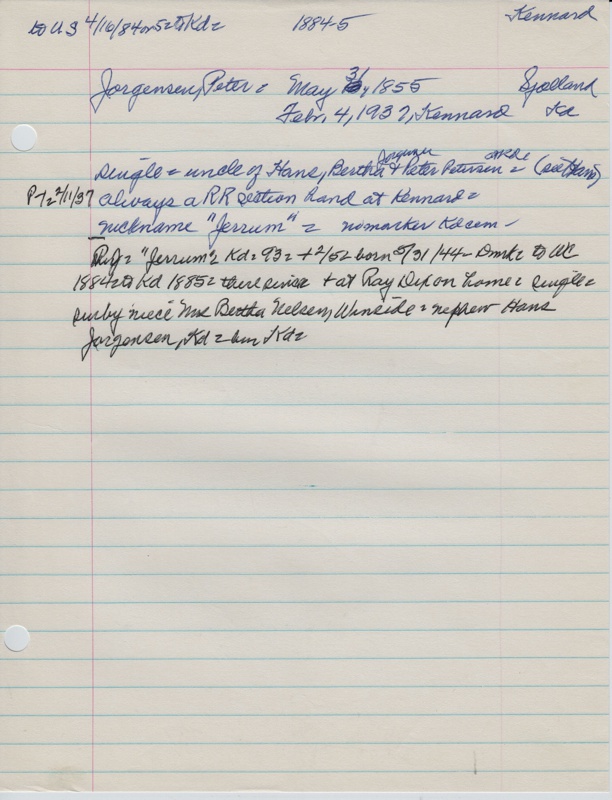 to US 4/16/84 or 5 = to Kd = 1884-5 Kennard
Jorgensen, Peter = May 31, 1855 Sjælland
Febr. 4, 1937, Kennard Kd
Jorgensen
single = uncle of Hans, Bertha & Peter Petersen = (see Hans)
P-T = 2/11/37 always a RR section hand at Kennard =
nickname "Jerrum" = no marker Kd cem -
P.J. = "Jerrum" = Kd = 93 = + 2/5 = born 5/31/44 - Dmrk = to WC
1884 = to Kd 1885 = there since + at Ray Dixon home = single =
surv by niece Mrs Bertha Nelsen, Winside = nephew Hans
Jorgensen, Kd = bur Kd =